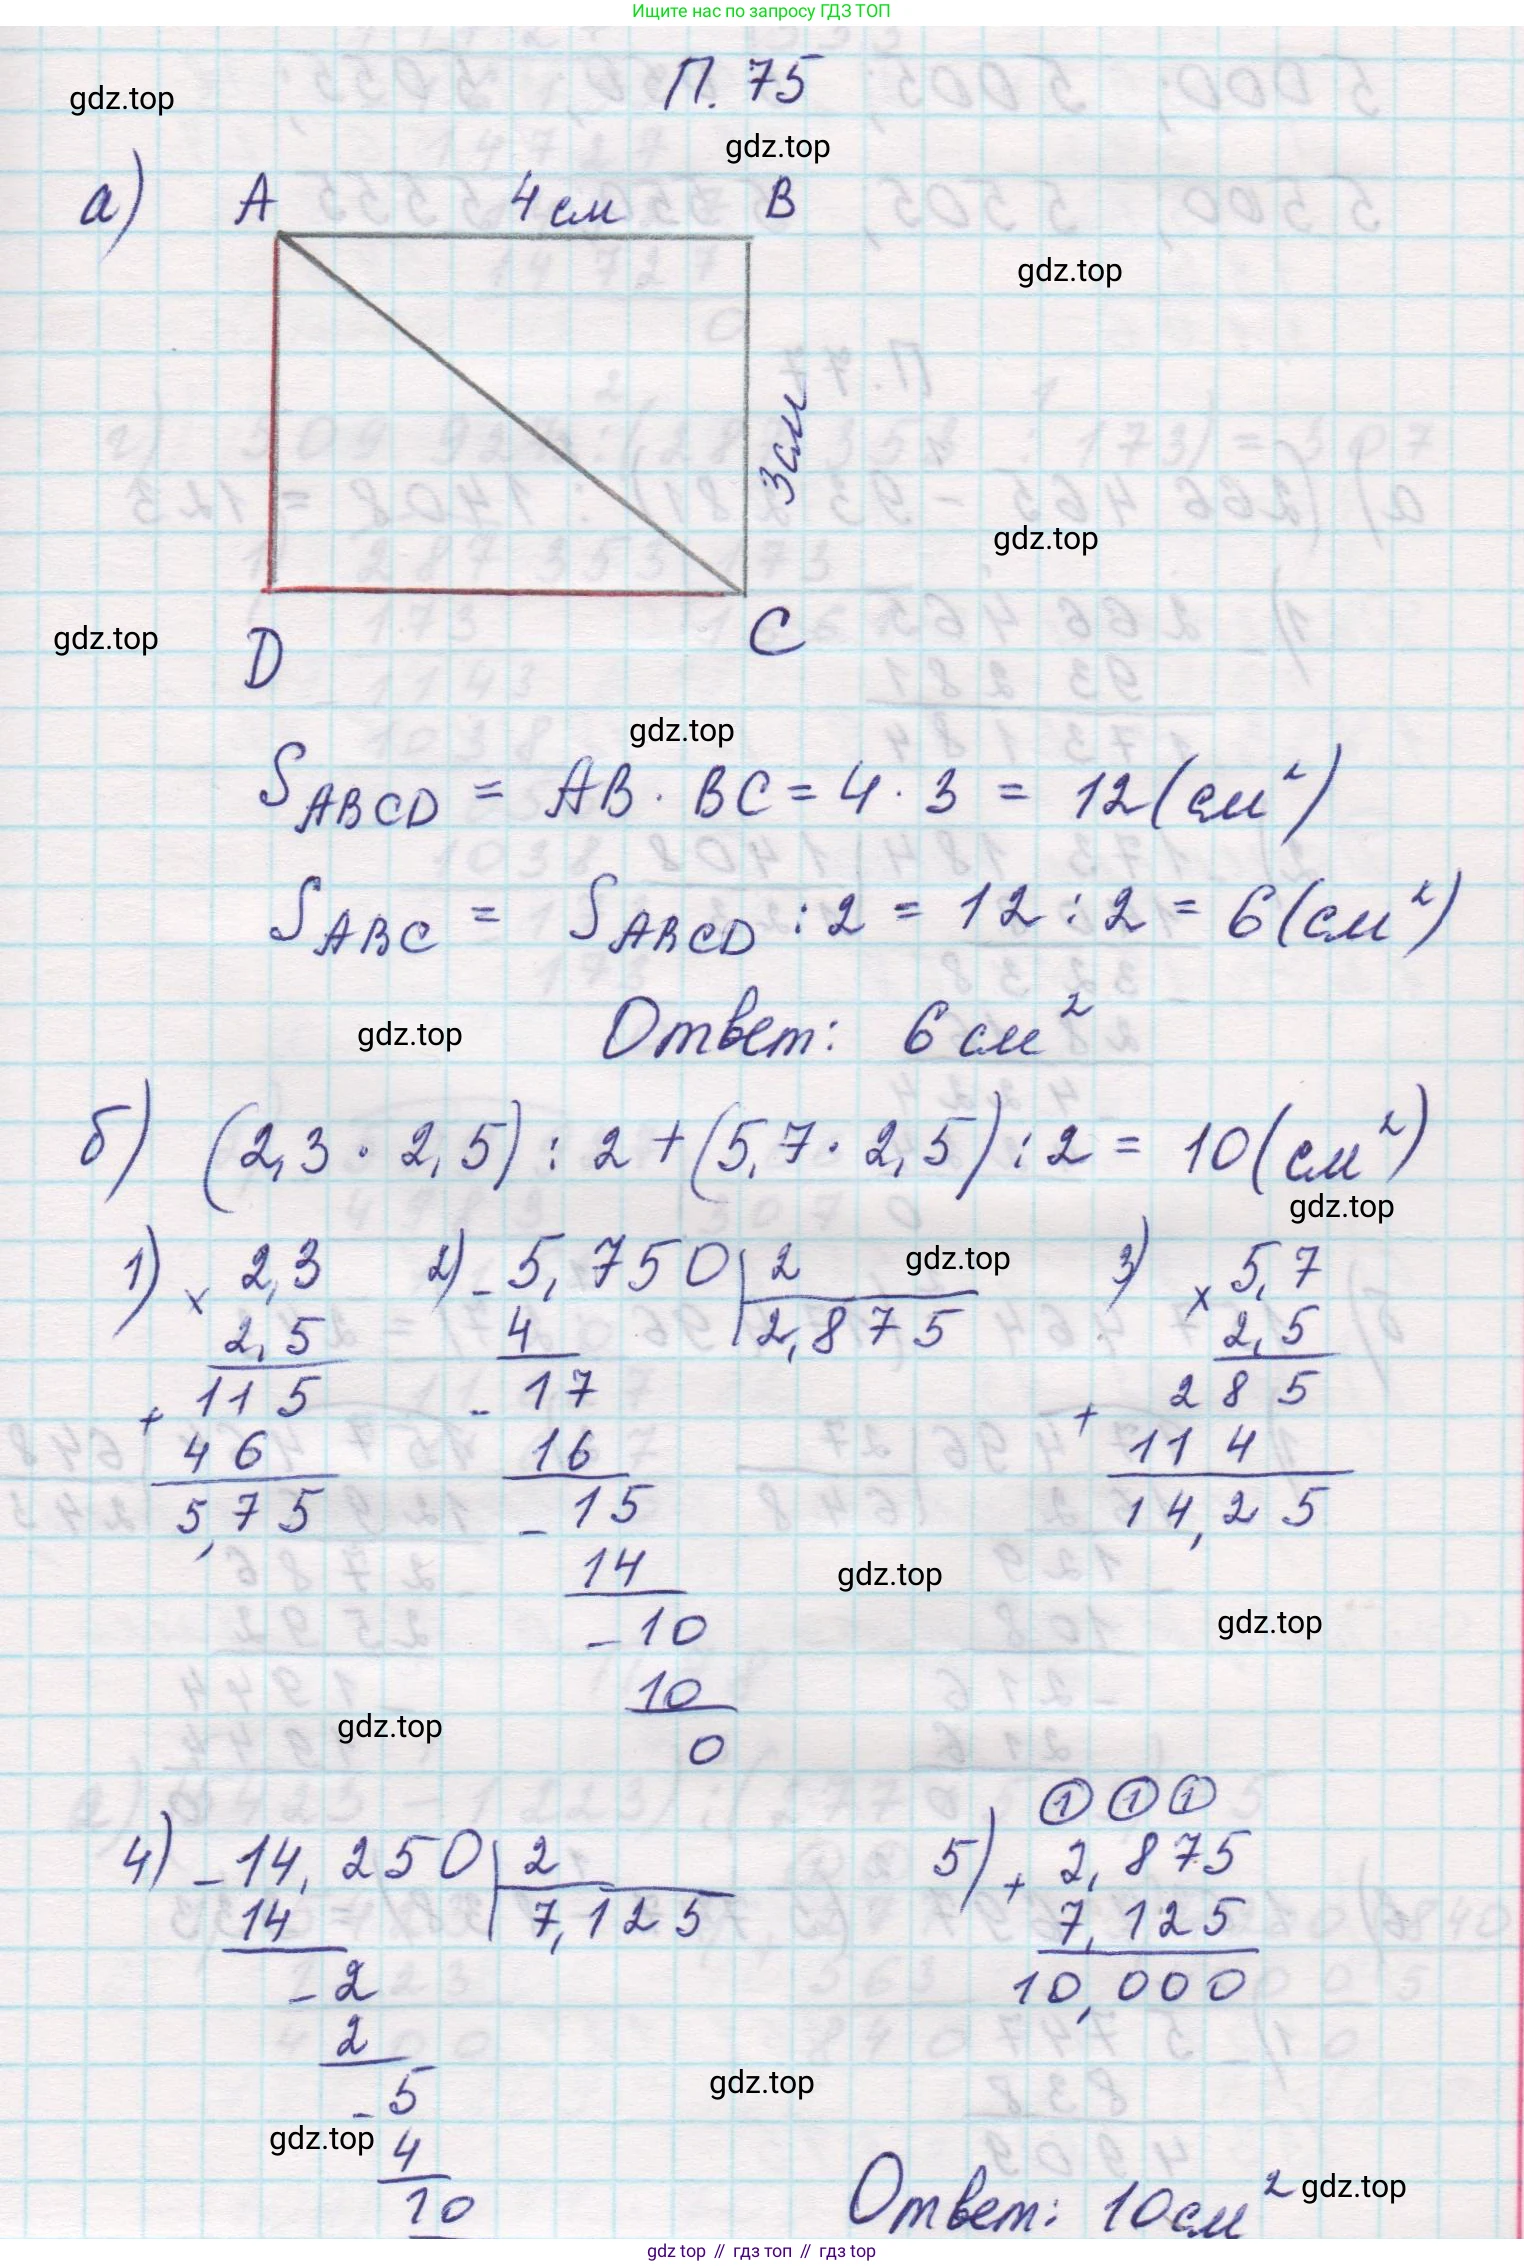 Ищите нас по запросу ГДЗ ТОП
П. 75
gdz.top
gdz.top
а) A 4 см B
gdz.top
3 см
gdz.top
gdz.top
D C
gdz.top
S ABCD = AB · BC = 4 · 3 = 12 (см²)
S ABC = S ABCD : 2 = 12 : 2 = 6 (см²)
gdz.top
Ответ: 6 см²
б) (2,3 · 2,5) : 2 + (5,7 · 2,5) : 2 = 10 (см²)
gdz.top
1) × 2,3
2,5
+ 115
46
5,75
2) - 5,750 | 2
4 2,875
- 17
16
- 15
14
- 10
10
0
gdz.top
3) × 5,7
2,5
+ 285
114
14,25
gdz.top
gdz.top
gdz.top
4) - 14,250 | 2
14 7,125
- 2
2
- 5
4
10
5) 1 1 1
+ 2,875
7,125
10,000
gdz.top
gdz.top
Ответ: 10 см²
gdz.top
gdz top // гдз топ // гдз top